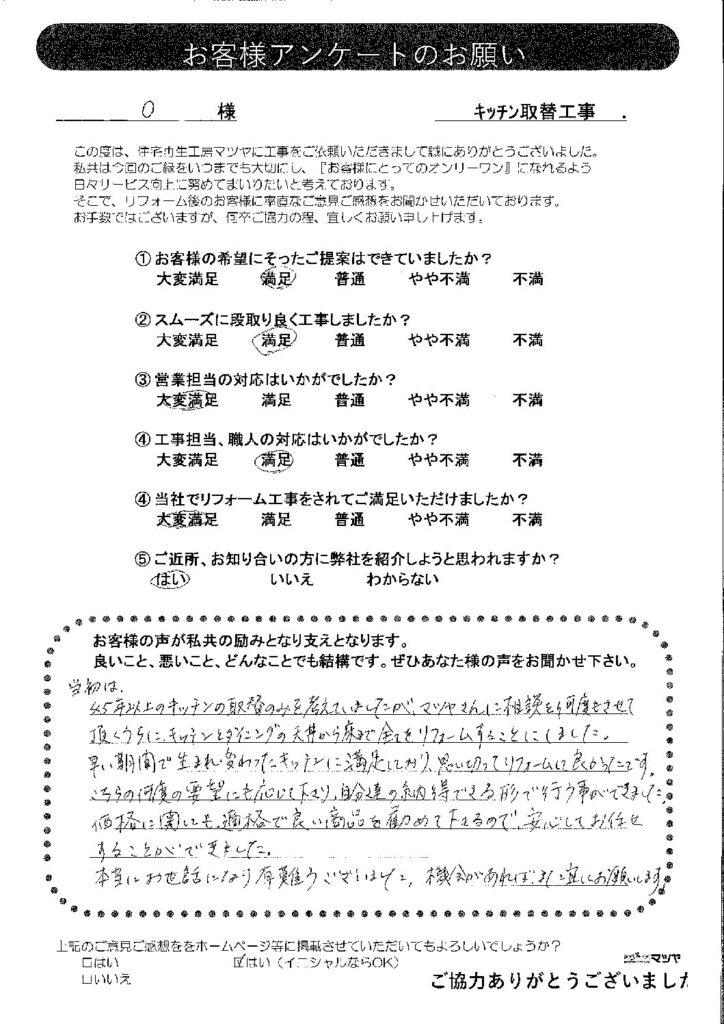 お客様アンケートのお願い
O 様 キッチン取替工事 .
この度は、住宅再生工房マツヤに工事をご依頼いただきまして誠にありがとうございました。
私共は今回のご縁をいつまでも大切にし、『お客様にとってのオンリーワン』になれるよう
日々サービス向上に努めてまいりたいと考えております。
そこで、リフォーム後のお客様に率直なご意見ご感想をお聞かせいただいております。
お手数ではございますが、何卒ご協力の程、宜しくお願い申し上げます。
①お客様の希望にそったご提案はできていましたか?
大変満足 満足 普通 やや不満 不満
②スムーズに段取り良く工事しましたか?
大変満足 満足 普通 やや不満 不満
③営業担当の対応はいかがでしたか?
大変満足 満足 普通 やや不満 不満
④工事担当、職人の対応はいかがでしたか?
大変満足 満足 普通 やや不満 不満
④当社でリフォーム工事をされてご満足いただけましたか?
大変満足 満足 普通 やや不満 不満
⑤ご近所、お知り合いの方に弊社を紹介しようと思われますか?
はい いいえ わからない
お客様の声が私共の励みとなり支えとなります。
良いこと、悪いこと、どんなことでも結構です。ぜひあなた様の声をお聞かせ下さい。
当初は、
45年以上のキッチンの取替のみを考えていましたが、マツヤさんに相談を何度もさせて
頂くうちに、キッチンとダイニングの天井から床まで全てをリフォームすることにしました。
早い期間で生まれ変わったキッチンに満足しており、思い切ってリフォームして良かったです。
こちらの何度の要望にも応じて下さり、自分達の納得できる形で行う事ができました。
価格に関しても、適格で良い商品を勧めて下さるので、安心してお任せ
することができました。
本当にお世話になり有難うございました。機会があれば、また宜しくお願いします。
上記のご意見ご感想ををホームページ等に掲載させていただいてもよろしいでしょうか?
□はい ☑はい(イニシャルならOK)
□いいえ
マツヤ
ご協力ありがとうございました